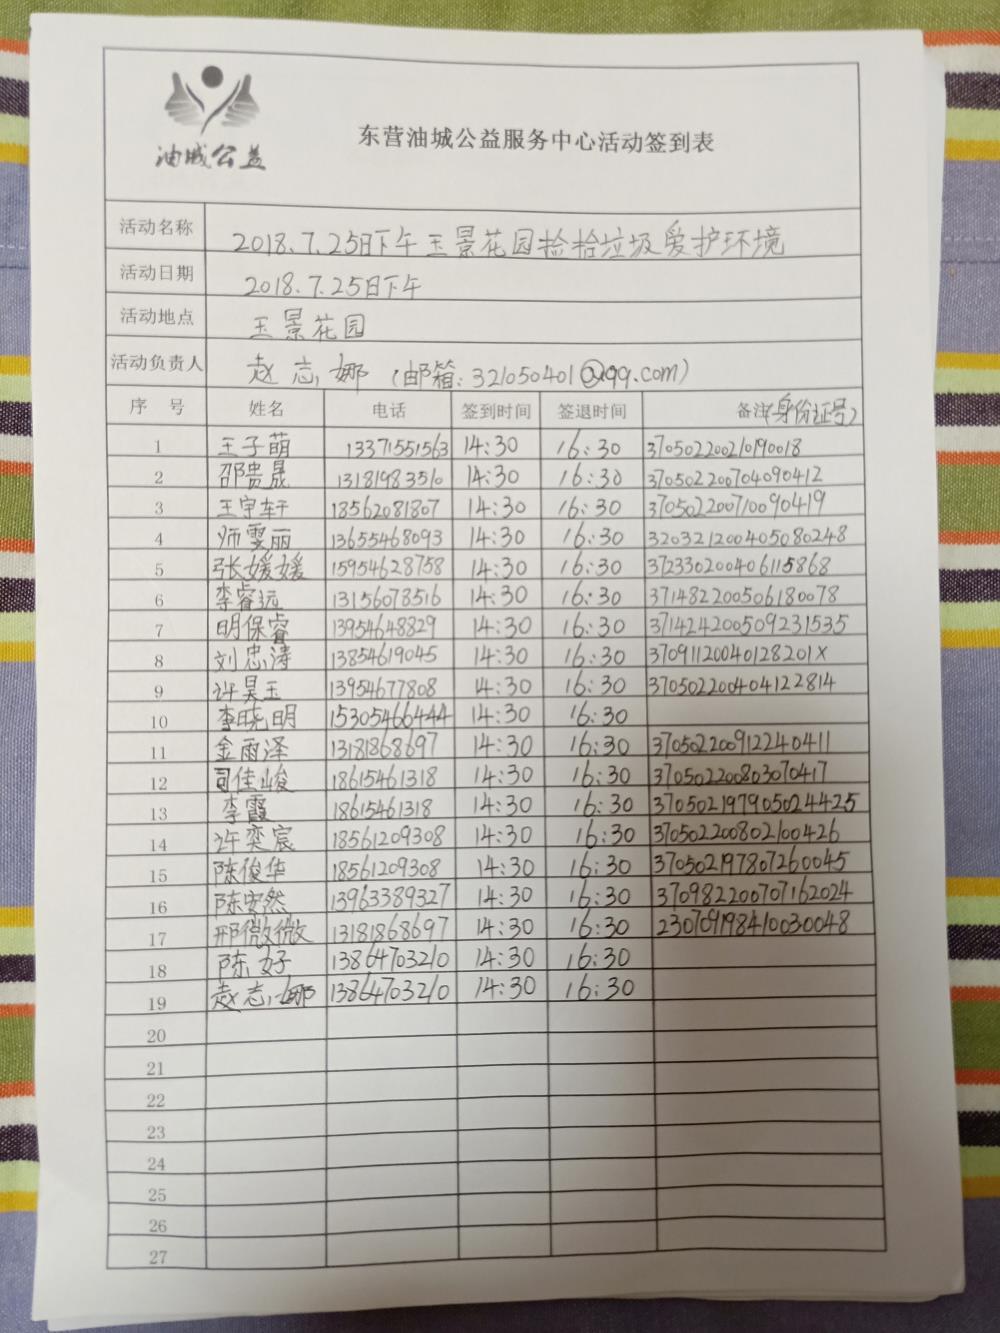 油城公益
东营油城公益服务中心活动签到表
活动名称 2018.7.25日下午玉景花园捡拾垃圾爱护环境
活动日期 2018.7.25日下午
活动地点 玉景花园
活动负责人 赵志娜（邮箱：321050401@qq.com）
序号 姓名 电话 签到时间 签退时间 备注（身份证号）
1 王子萌 13371551563 14:30 16:30 370502200210190018
2 邵贵晟 13181983510 14:30 16:30 370502200704090412
3 王宇轩 18562081807 14:30 16:30 370502200710090419
4 师雯丽 13655468093 14:30 16:30 320321200405080248
5 张媛媛 15954628758 14:30 16:30 372330200406115868
6 李睿远 13156078516 14:30 16:30 371482200506180078
7 明保睿 13954648829 14:30 16:30 371424200509231535
8 刘忠涛 13854619045 14:30 16:30 37091120040128201X
9 许昊玉 13954677808 14:30 16:30 370502200404122814
10 李晓明 15305466444 14:30 16:30
11 金雨泽 13181868697 14:30 16:30 370502200912240411
12 司佳峻 18615461318 14:30 16:30 370502200803070417
13 李霞 18615461318 14:30 16:30 370502197905024425
14 许奕宸 18561209308 14:30 16:30 370502200802100426
15 陈俊华 18561209308 14:30 16:30 370502197807260045
16 陈安然 13963389327 14:30 16:30 370982200707162024
17 邢微微 13181868697 14:30 16:30 230709198410030048
18 陈好 13864703210 14:30 16:30
19 赵志娜 13864703210 14:30 16:30
20
21
22
23
24
25
26
27